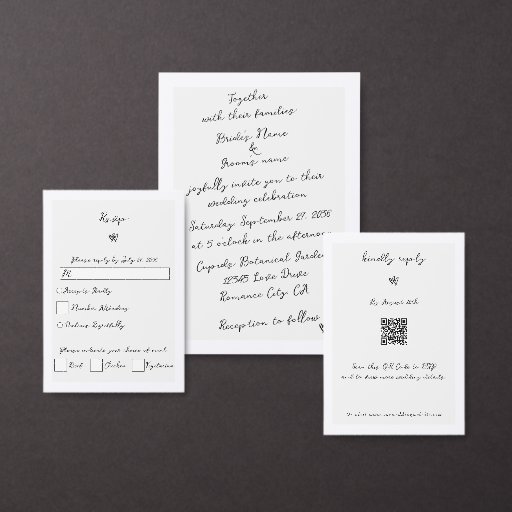 Together
with their families
Bride's Name
&
Groom's name
joyfully invite you to their
wedding celebration
Saturday September 27, 2036
at 5 o'clock in the afternoon
Cupids Botanical Garden
12345 Love Drive
Romance City, CA
Reception to follow
Rsvp
Please reply by July 27, 2036
M
Accepts Joyfully
Number Attending
Declines Regretfully
Please indicate your choice of meal
Beef Chicken Vegetarian
kindly reply
By August 20th
Scan this QR Code to RSVP
and to learn more wedding details.
Or visit